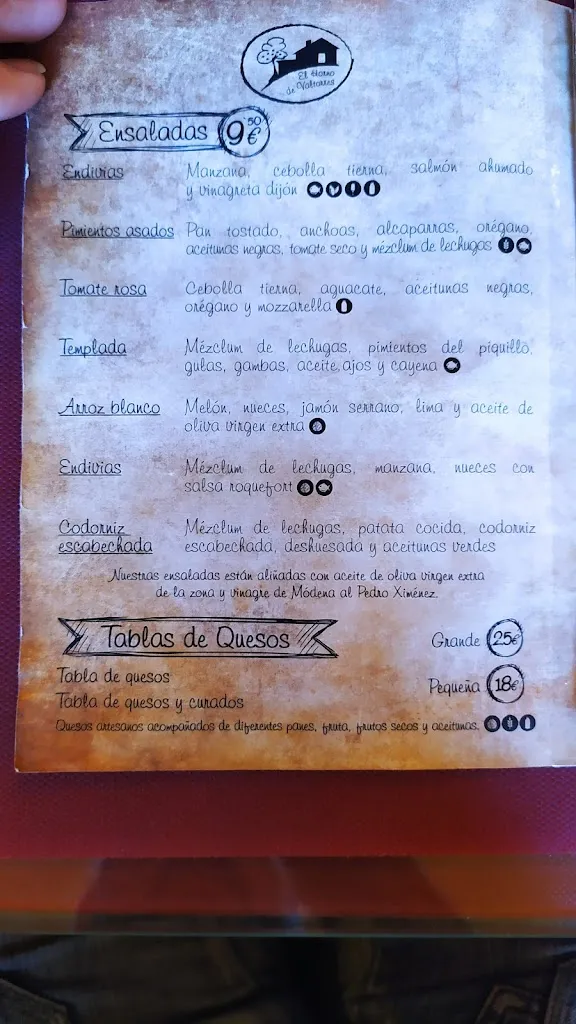 El Horno
de Valtorres
Ensaladas 9'50€
Endivias Manzana, cebolla tierna, salmón ahumado
y vinagreta dijón
Pimientos asados Pan tostado, anchoas, alcaparras, orégano,
aceitunas negras, tomate seco y mézclum de lechugas
Tomate rosa Cebolla tierna, aguacate, aceitunas negras,
orégano y mozzarella
Templada Mézclum de lechugas, pimientos del piquillo,
gulas, gambas, aceite, ajos y cayena
Arroz blanco Melón, nueces, jamón serrano, lima y aceite de
oliva virgen extra
Endivias Mézclum de lechugas, manzana, nueces con
salsa roquefort
Codorniz Mézclum de lechugas, patata cocida, codorniz
escabechada escabechada, deshuesada y aceitunas verdes
Nuestras ensaladas están aliñadas con aceite de oliva virgen extra
de la zona y vinagre de Módena al Pedro Ximénez.
Tablas de Quesos Grande 25€
Tabla de quesos
Pequeña 18€
Tabla de quesos y curados
Quesos artesanos acompañados de diferentes panes, fruta, frutos secos y aceitunas.